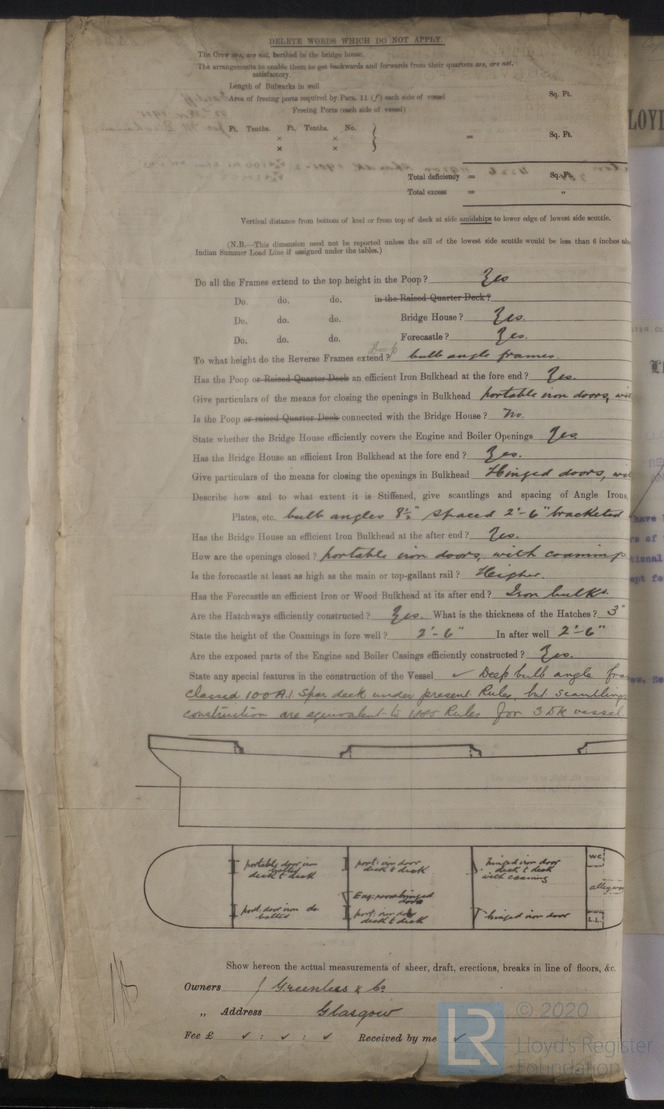 DELETE WORDS WHICH DO NOT APPLY.
The Crew are, are not, berthed in the bridge house.
The arrangements to enable them to get backwards and forwards from their quarters are, are not,
satisfactory.
Length of Bulwarks in well
Area of freeing ports required by Para. 11 (f) each side of vessel Sq. Ft.
Freeing Ports (each side of vessel)
Ft. Tenths. Ft. Tenths. No.
×  ×  = Sq. Ft.
×  ×
Total deficiency = Sq. Ft.
Total excess = „
Vertical distance from bottom of keel or from top of deck at side amidships to lower edge of lowest side scuttle.
(N.B.—This dimension need not be reported unless the sill of the lowest side scuttle would be less than 6 inches
Indian Summer Load Line if assigned under the tables.)
Do all the Frames extend to the top height in the Poop? Yes
Do. do. do. in the Raised Quarter Deck?
Do. do. do. Bridge House? Yes.
Do. do. do. Forecastle? Yes.
To what height do the Reverse Frames extend? Deep bulb angle frames.
Has the Poop or Raised Quarter Deck an efficient Iron Bulkhead at the fore end? Yes.
Give particulars of the means for closing the openings in Bulkhead portable iron doors,
Is the Poop or raised Quarter Deck connected with the Bridge House? No.
State whether the Bridge House efficiently covers the Engine and Boiler Openings Yes
Has the Bridge House an efficient Iron Bulkhead at the fore end? Yes.
Give particulars of the means for closing the openings in Bulkhead Hinged doors,
Describe how and to what extent it is Stiffened, give scantlings and spacing of Angle Irons,
Plates, etc. bulb angles 8½" spaced 2'-6" bracketed
Has the Bridge House an efficient Iron Bulkhead at the after end? Yes.
How are the openings closed? portable iron doors, with coamings
Is the forecastle at least as high as the main or top-gallant rail? Higher.
Has the Forecastle an efficient Iron or Wood Bulkhead at its after end? Iron bulkd.
Are the Hatchways efficiently constructed? Yes. What is the thickness of the Hatches? 3"
State the height of the Coamings in fore well? 2'-6" In after well 2'-6"
Are the exposed parts of the Engine and Boiler Casings efficiently constructed? Yes.
State any special features in the construction of the Vessel ✓ Deep bulb angle
Classed 100A.1 Spar deck under present Rules, but scantlings
construction are equivalent to 1885 Rules for 3 DK vessel
portable door iron
deck & deck
port: iron door
deck & deck
hinged iron door
deck & deck
with coaming
W.C.
port. door iron do
port. iron do
deck & deck
hinged iron door
L.L.
Show hereon the actual measurements of sheer, draft, erections, breaks in line of floors, &c.
Owners Greenlees & Co
„ Address Glasgow
Fee £ ✓ : ✓ : ✓ Received by me ✓
LR
© 2020
Lloyd's Register
Foundation